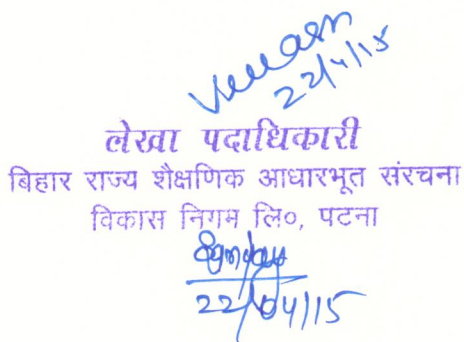 22/4/15
लेखा पदाधिकारी
बिहार राज्य शैक्षणिक आधारभूत संरचना
विकास निगम लि०, पटना
22/04/15